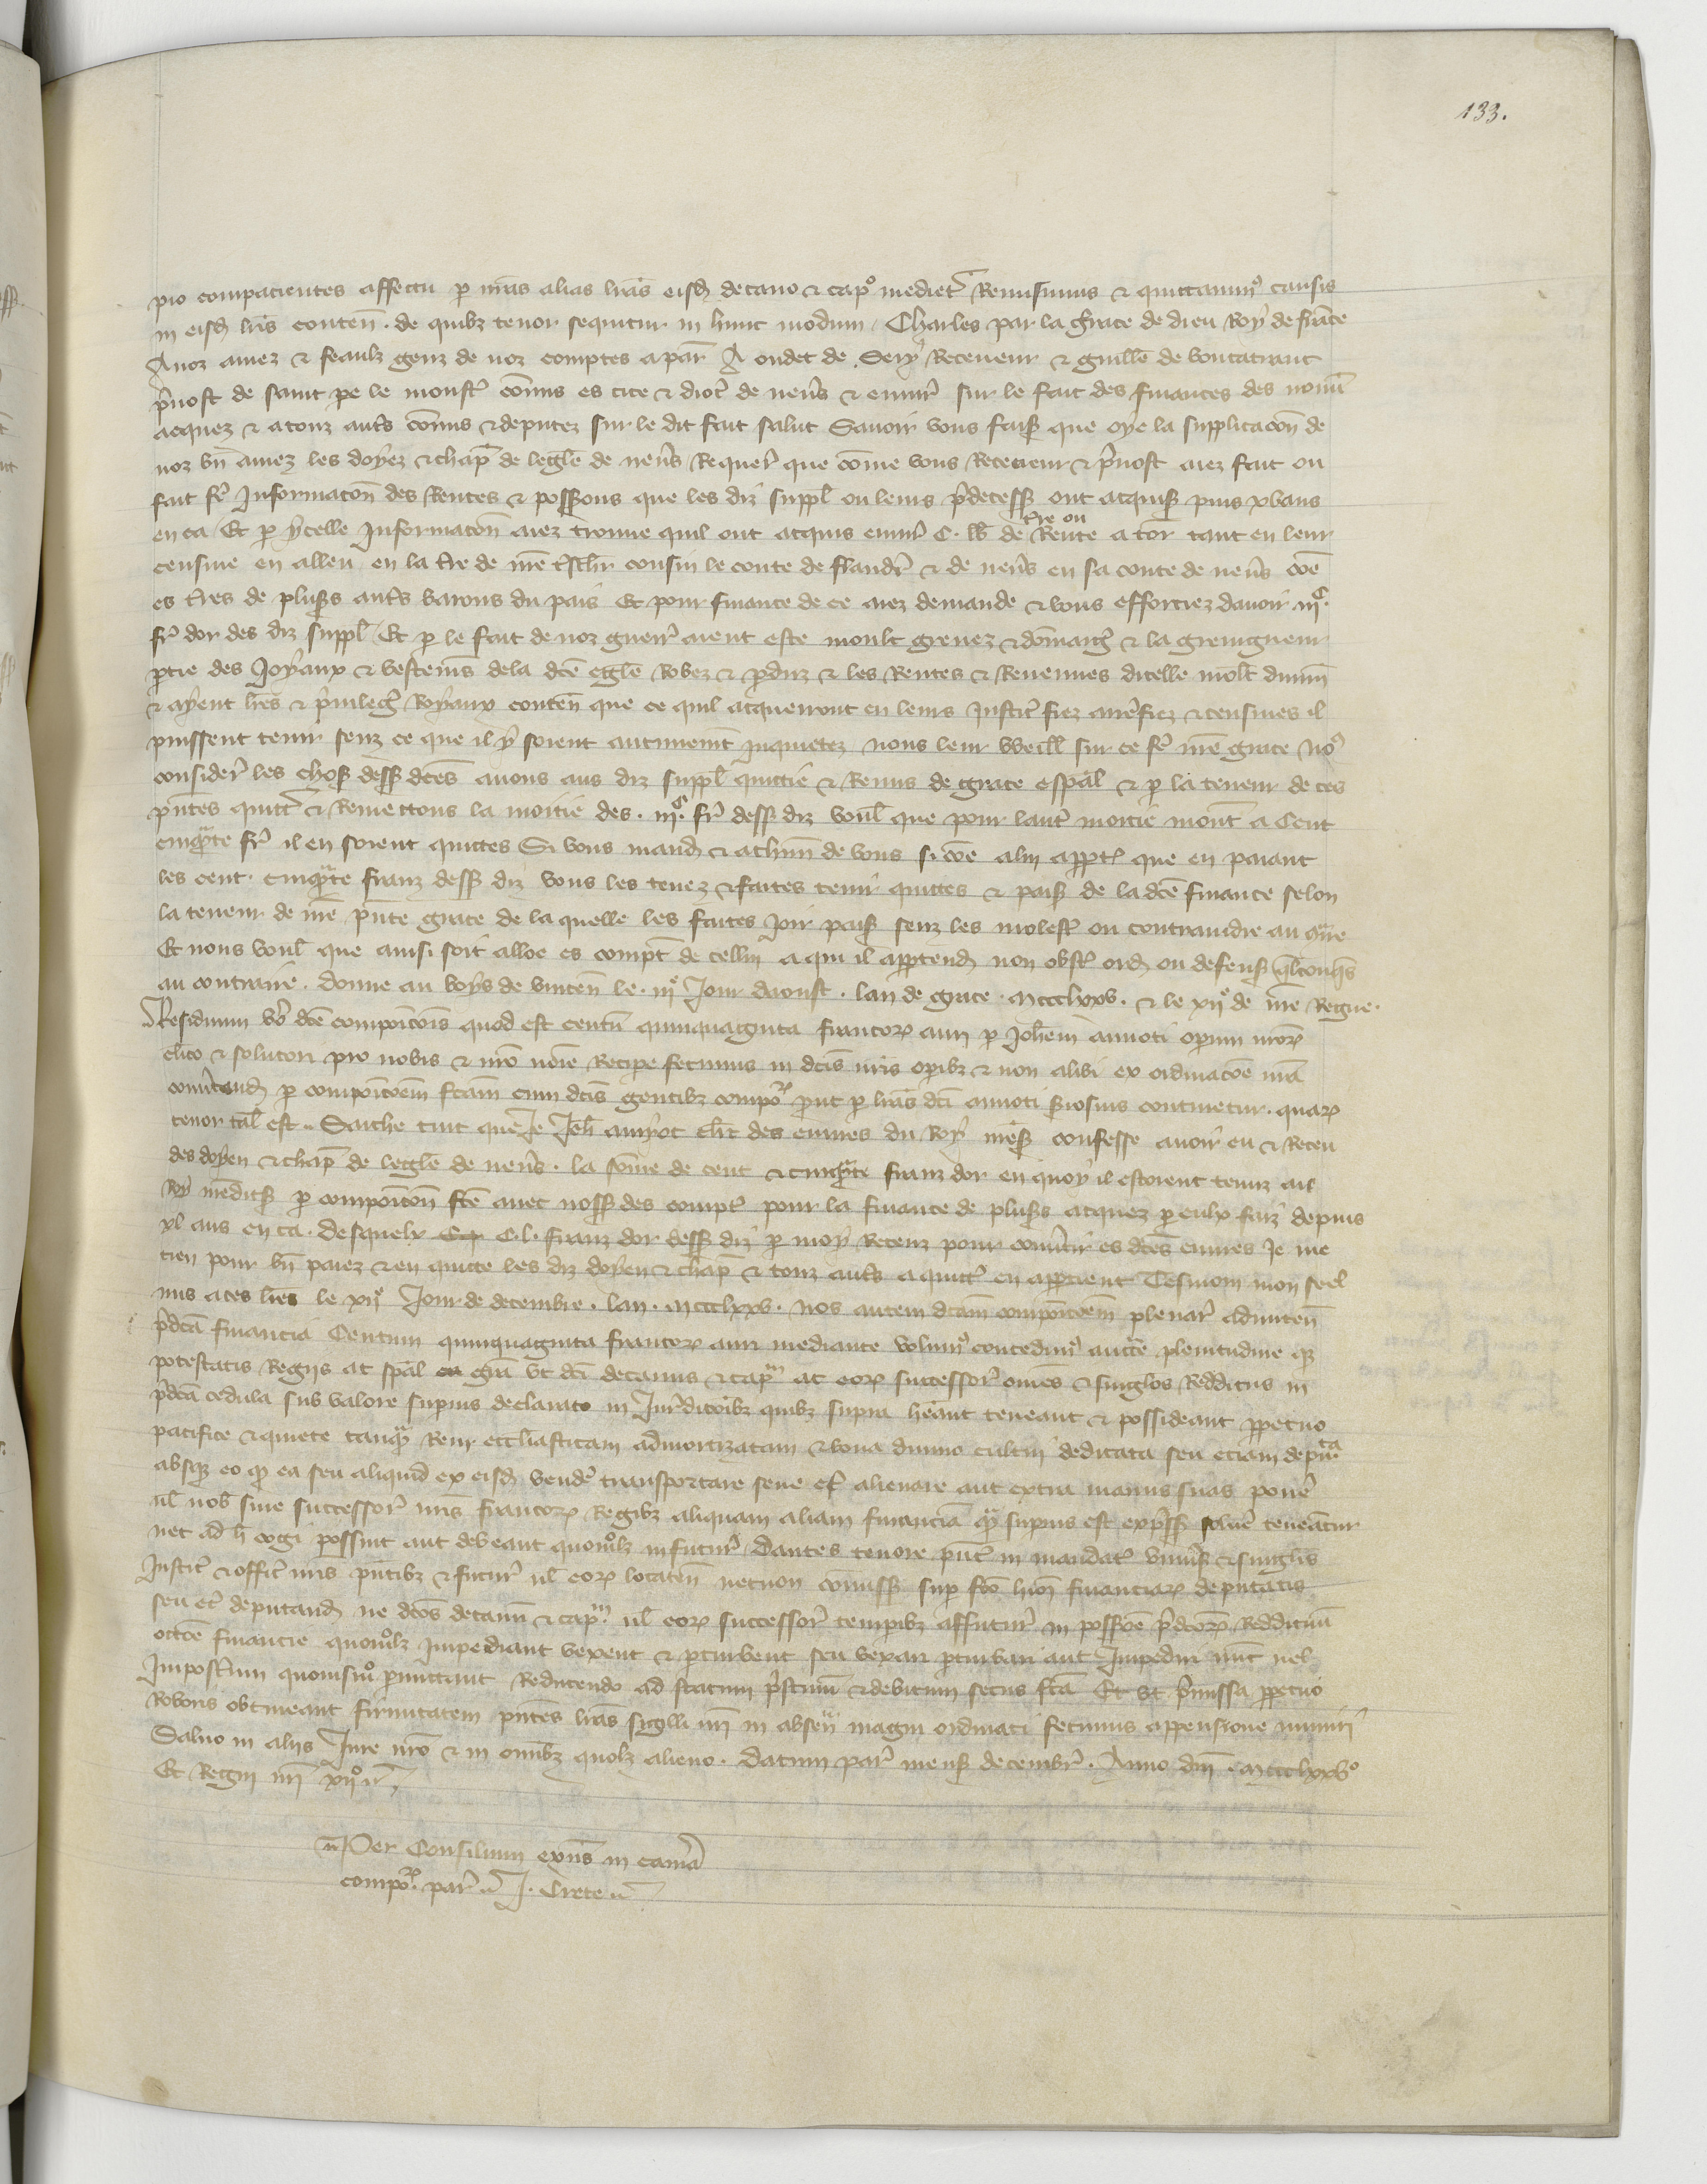 133.
pio compacientes affectu p nrās alias lrās eisd decano & capo mediet Remisimus & quittavimo causis
in eisd lris conten . de quibz tenor sequitur in hunc modum Charles par la grace de dieu Roy de france
A noz amez & feaulx genz de noz comptes a par A oudet de Sery Receveur & guille de
pvost de saint pe le monst comis es cite & dioc de nevs & envir sur le fait des finances des nouv
acquez & a touz auts comis & deputez sur le dit fait salut Savoir vous fais que oye la supplicacon de
noz bn amez les doyez & chap de legle de nevs Requer que come vous Receveur & pvost aiez fait ou
fait fe Informacon des Rentes & possions que les diz suppl ou leurs pdecess ont acquis puis xl ans
en ca Et p ycelle Informacon aiez trouve quil ont acquis envir C . lb de tre ou Rente a tor tant en leur
censive en alleu en la tre de nre treschr cousin le conte de flandr & de nevs en sa conte de nevs coe
es tres de pluss auts barons du pais Et pour finance de ce aiez demande & vous efforciez davoir iijc
fr dor des diz suppl Et p le fait de noz guerr aient este moult grevez & domaig & la greingneur
ptie des Joyaux & vestems de la dce egle Robez & pduz & les Rentes & Revenues dicelle molt dimin
& ayent lres & pvileg Royaux conten que ce quil acquerront en leurs Justic fiez arrefiez & censives il
puissent tenir senz ce que il y soient autremēt inquietez nous leur veill sur ce fe nre grace No
consider les chos dess dces avons aus diz suppl quittie & Remis de grace espal & p la teneur de ces
pntes quitt & Remettons la moitie des . iijc fr dess diz voul que pour laut moitie mont a Cent
cinqte fr il en soient quittes Si vous mand & a chun de vous si coe a lui appt que en paiant
les cent . cinqte franz dess diz vous les tenez & faites tenir quittes & pais de la dce finance selon
la teneur de nre pnte grace de la quelle les faites Joir pais senz les molest ou contraindre au ctre
Et nous voul que ainsi soit alloe es compt de cellui a qui il apptend non obst ord ou defens qlconqs
au contraire . donne au boys de vincen le . iije Jour daoust . lan de grace . mccclxxv . & le xije de nre Regne .
Residuum vo dce compoicois quod est centu quinquaginta francor auri p Johem amioti operum nror
clico & solutori pro nobis & nro noie Recipe fecimus in dcis nris opibz & non alibi ex ordinacoe nra
convtend p compoicoem fcam cum dcis gentibz compo put p lras dci amioti pinsius continetur . quar
tenor tal est . Saiche tuit que Je Jeh amyot clerc des euvres du Roy nres confesse avoir eu & Receu
des doyen & chap de legle de nevs . la some de cent & cinqte franz dor en quoy il estoient tenuz au
Roy nredits p compoicon fce avec noss des compt pour la finance de pluss acquez p eulx faiz depuis
xl ans en ca . desquelx C.l. franz dor dess diz p moy Receuz pour convtir es dces euvres Je me
tien pour bn paiez & en quitte les diz doyen & chap & touz auts a qui quitt en apptient Tesmoin mon seel
mis a ces lres le xije Jour de decembre . lan . mccclxxv . Nos autem dcam compoicoem plenar advtten
pdca financia Centum quinquaginta francor auri mediante volumo concedimo aucte plenitudine qz
potestatis Regijs ac spal gra ut dci decanus & capm ac eor successor omes & singlos Redditus in
pdca cedula sub valore supius declarato in Jurdicoibz quibz supra heant teneant & possideant ppetuo
pacifice & quiete tanq Rem ecclasticam admortizatam & bona divino cultui dedicata seu etiam deputa
absqz eo q ea seu aliquid ex eisd vende transportare seu alienare aut extra manus suas pone
ul nob sive successor nris francor Regibz aliquam aliam financia q supius est expss solve teneatur
nec ad h cogi possint aut debeant quomolz in futur Dantes tenore pnt in mandat univs & singlis
Justic & offic nris pntibz & futur ul eor locaten necnon comiss sup fco huoi financiar deputatis
seu et deputand ne dcos decanu & capm ul eor successor tempibz affutur in possoe pdcor Reddituu
occoe financie quomolz impediant vexent & pturbent seu vexari pturbari aut Impediri nuc vel
Impostum quomismo pmittant Reducendo ad statum pstinu & debitum secus fca Et ut pmissa ppetuo
Roboris obtineant firmitatem pntes lras sigilli nri in absen magni ordinati fecimus appensione muniri
Salvo in aliis Jure nro & in omibz quolz alieno . Datum par mens decembr . Anno dni mccclxxvo
Et Regni nri xijo
Per Consilium exns in cama
compo . par J . Crete